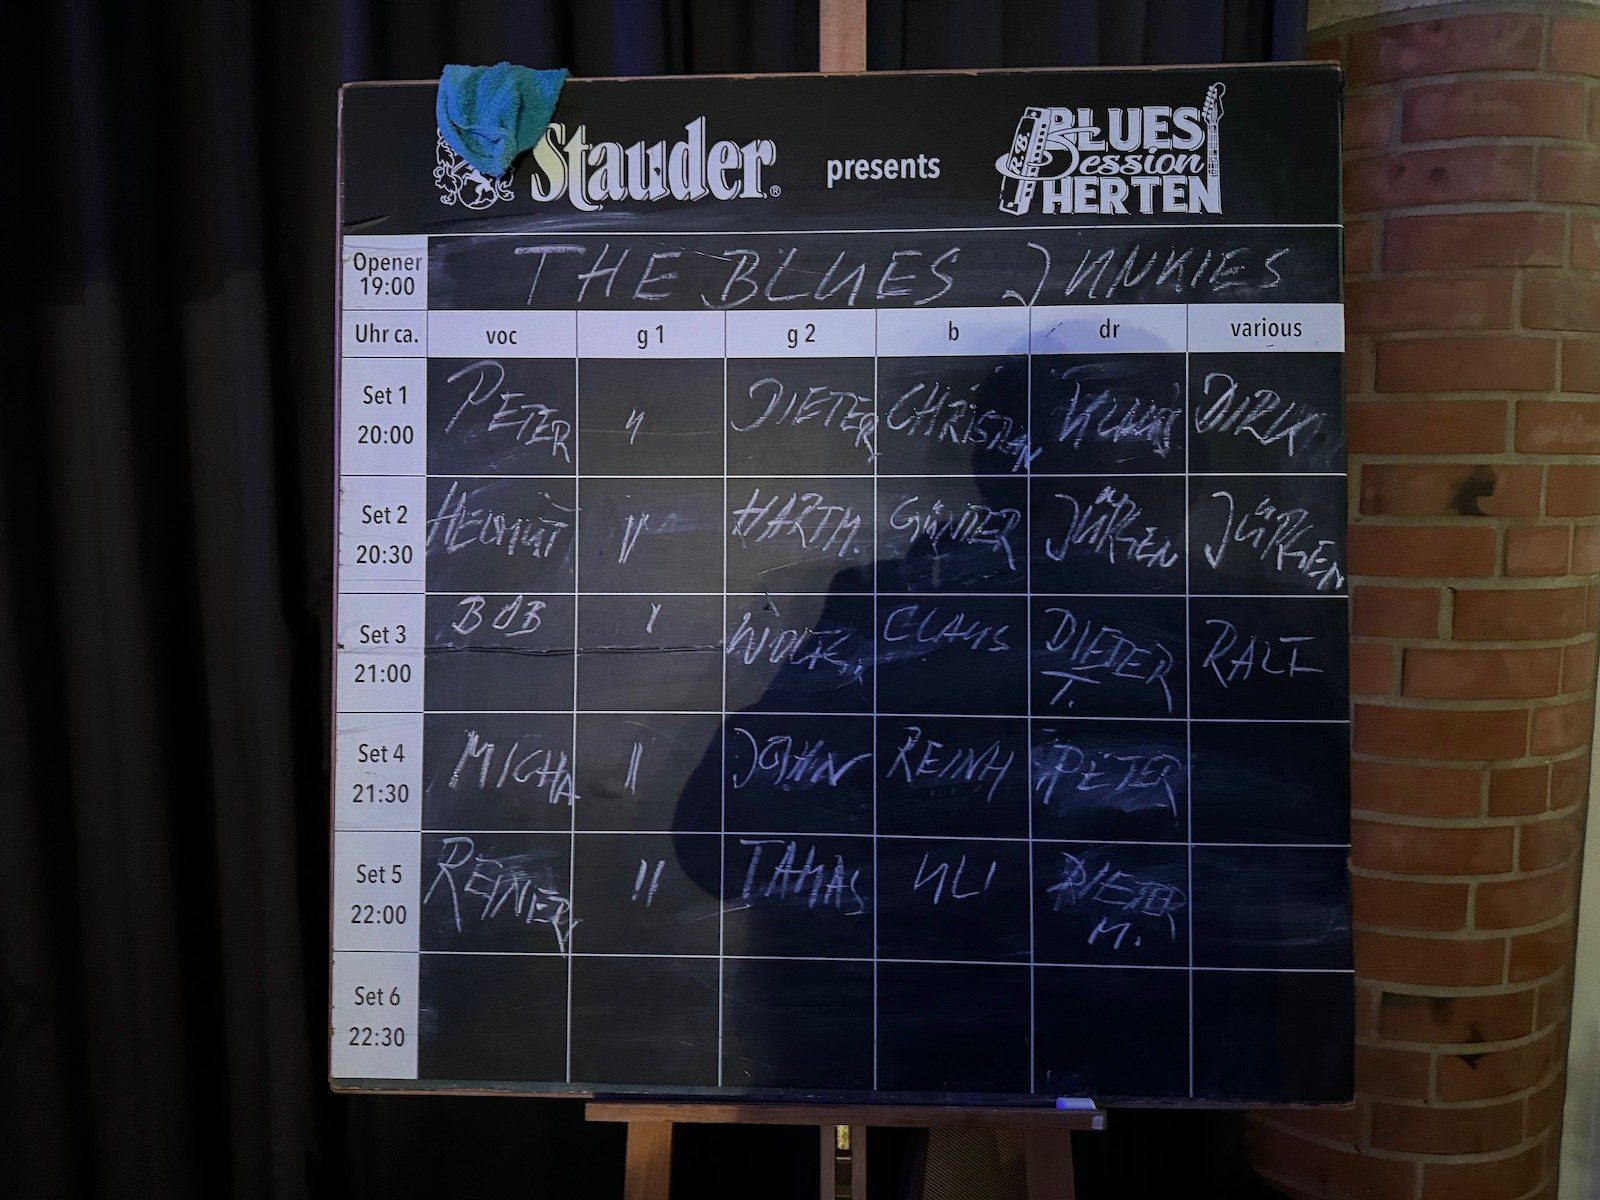 Stauder® presents R.B. BLUES Session HERTEN
Opener 19:00 THE BLUES JUNKIES
Uhr ca. voc g 1 g 2 b dr various
Set 1 20:00 PETER " DIETER CHRISTIAN KLAUS DIRK
Set 2 20:30 HELMUT " HARTM. GÜNTER JÜRGEN JÜRGEN
Set 3 21:00 BOB " CLAUS DIETER T. RALF
Set 4 21:30 MICHA " JOHN REINH PETER
Set 5 22:00 REINER " TAMAS ULI DIETER M.
Set 6 22:30